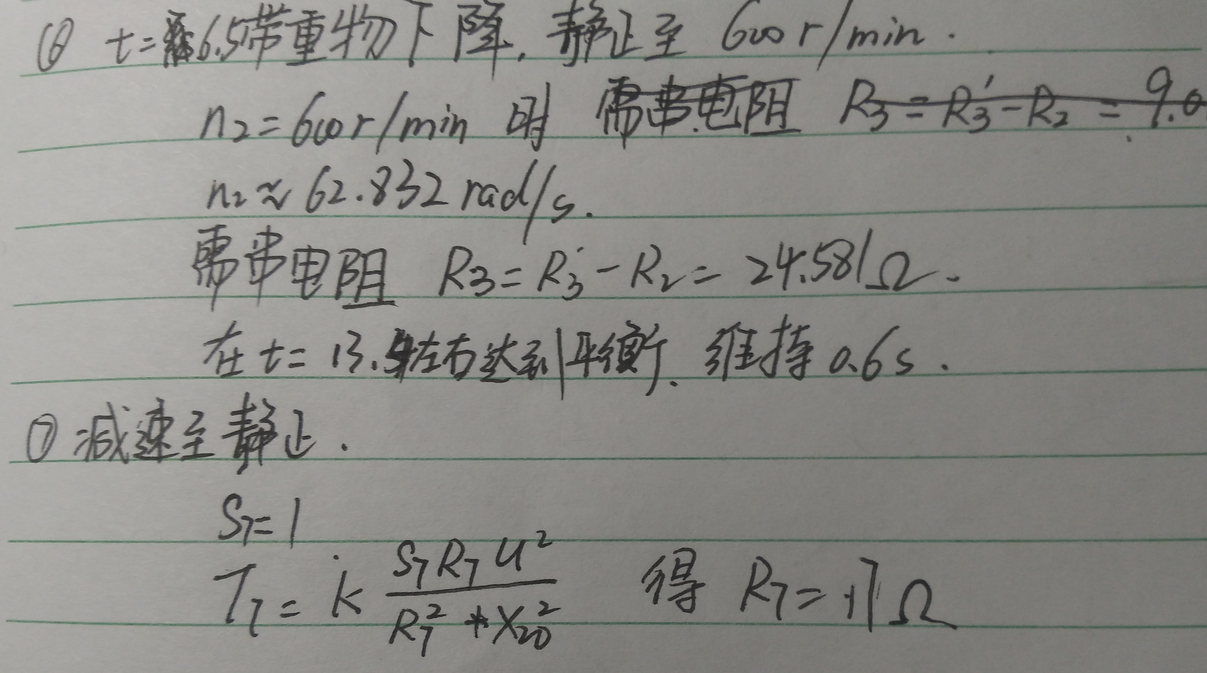 ⑥ t=6.5带重物下降,静止至 600r/min.
n₂=600r/min 时 需串电阻 R₃=R₃'-R₂=9.0
n₂≈62.832rad/s.
需串电阻 R₃=R₃'-R₂=24.581Ω.
在t=13.5左右达到平衡.维持0.6s.
⑦减速至静止.
S₇=1
T₇=k S₇R₇U²/R₇²+X₂₀² 得 R₇=17Ω